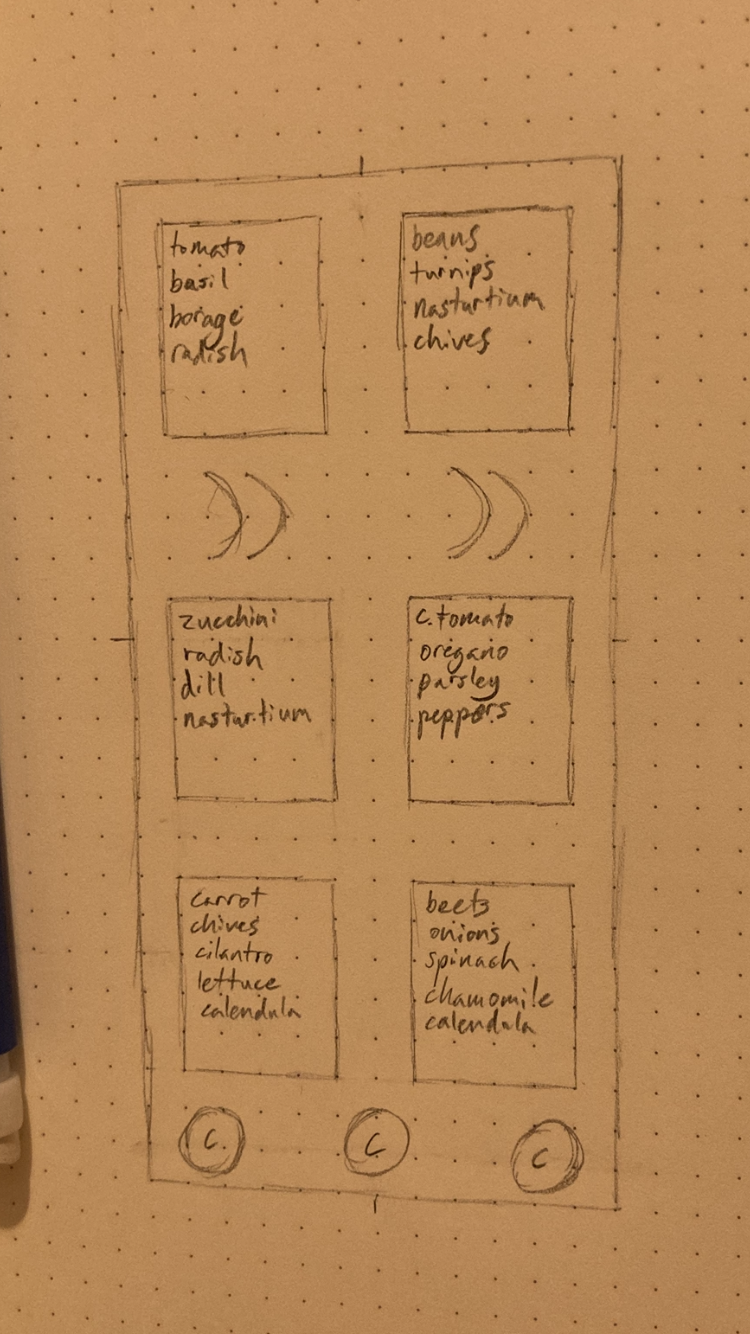 tomato
basil
borage
radish
beans
turnips
nasturtium
chives
zucchini
radish
dill
nasturtium
c.tomato
oregano
parsley
peppers
carrot
chives
cilantro
lettuce
calendula
beets
onions
spinach
chamomile
calendula
C.
C
C